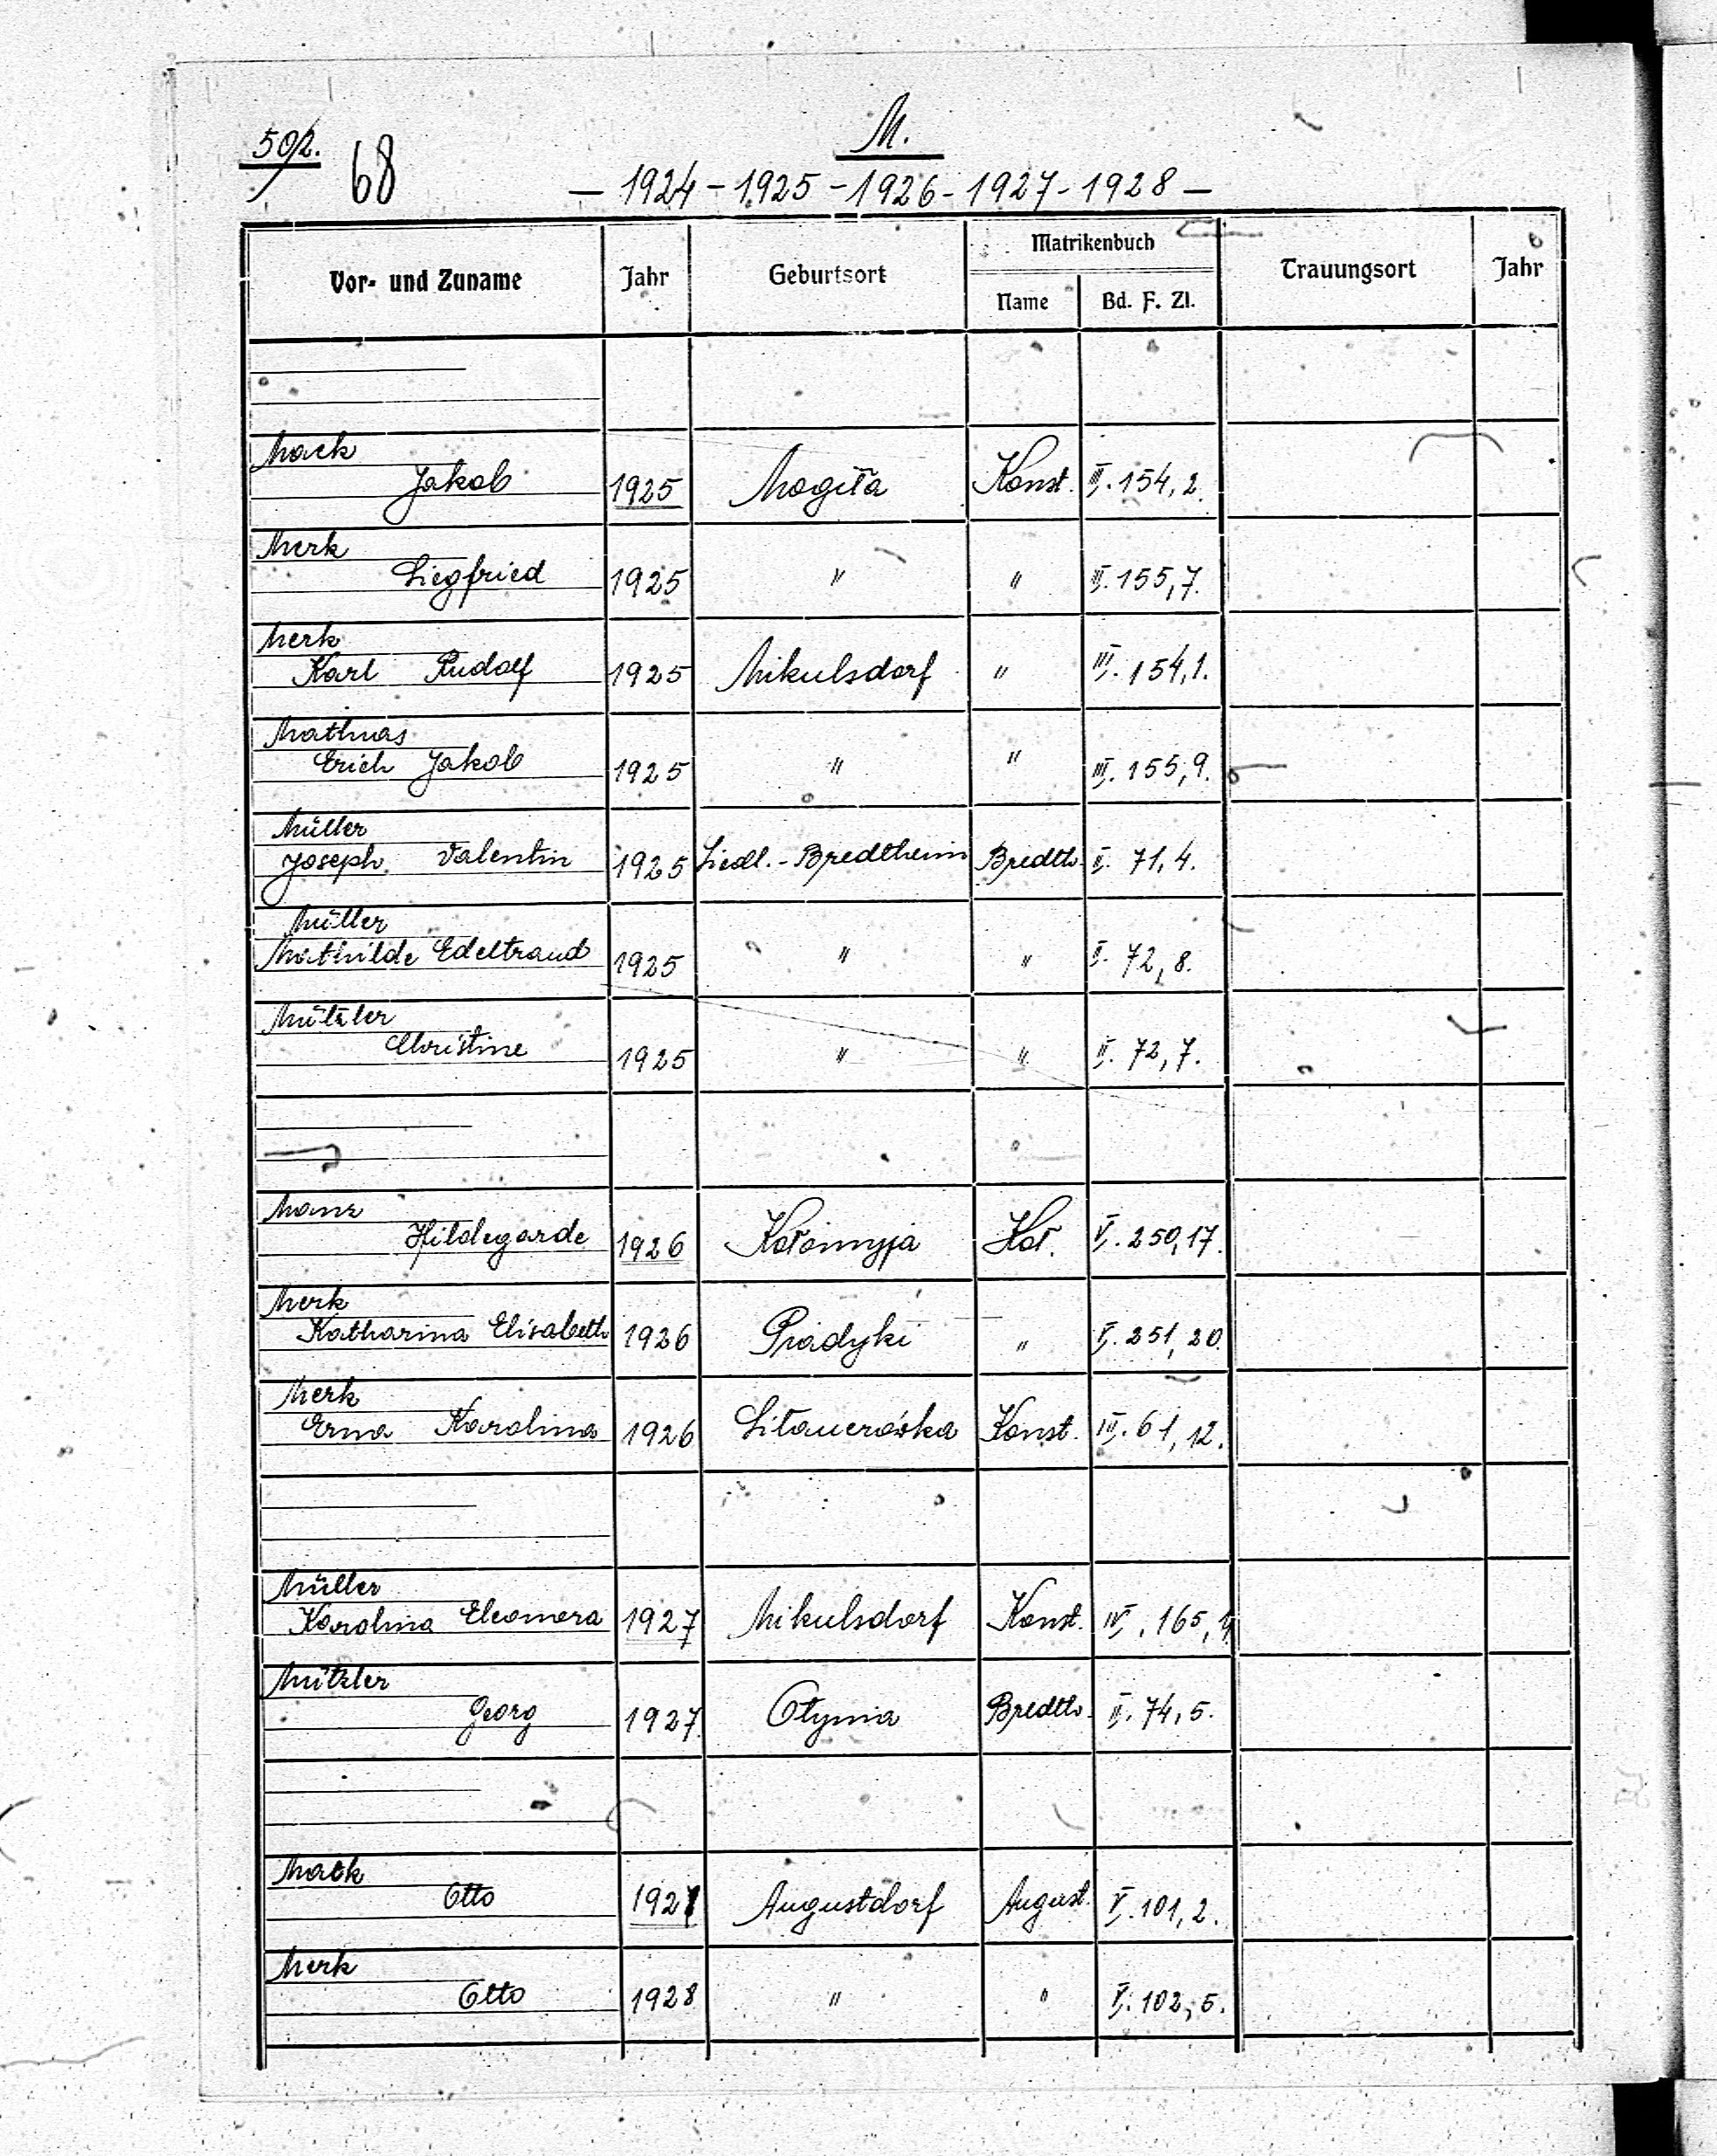 502.
68
M.
— 1924 - 1925 - 1926 - 1927 - 1928 —
Vor- und Zuname Jahr Geburtsort Matrikenbuch Trauungsort Jahr
Name Bd. F. Zl.
Mack
Jakob 1925 Mogiła Konst. III. 154, 2.
Merk
Siegfried 1925 " " III. 155, 7.
Merk
Karl Rudolf 1925 Mikulsdorf " III. 154, 1.
Mathias
Erich Jakob 1925 " " III. 155, 9.
Müller
Joseph Valentin 1925 Siedl.-Bredtheim Bredth. II. 71, 4.
Müller
Mathilde Edeltraud 1925 " " II. 72, 8.
Mützler
Christine 1925 " " II. 72, 7.
Manz
Hildegarde 1926 Kołomyja Koł. V. 250, 17.
Merk
Katharina Elisabeth 1926 Piadyki " V. 251, 20.
Merk
Erna Karolina 1926 Konst. 61, 12.
Müller
Karolina Eleonora 1927 Mikulsdorf Konst. IV. 165,
Mützler
Georg 1927. Otynia Bredth. II. 74, 5.
Mack
Otto Augustdorf August. V. 101, 2.
Merk
Otto 1928 " " V. 102, 5.